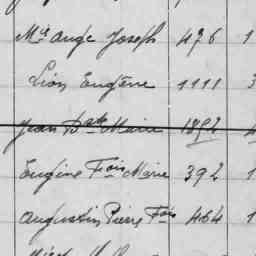 Mie ange Joseph 476 1
Léon Eugène 1111 3
Jean Bte Marie 1892
Eugène Fois Marie 392 1
augustin Pierre Fois 464 1